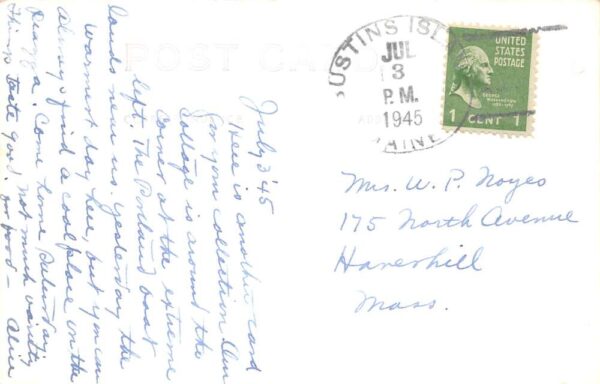 POST CARD
July 3 '45
Here is another card
for your collection. Our
cottage is around the
corner at the extreme
left. The Portland boat
lands near us. Yesterday the
warmest day here, but you can
always find a cool place on the
piazza. Come home Saturday.
Things taste good, not much variety
in food — Alice
USTINS ISL
JUL
3
P.M.
1945
MAINE
UNITED
STATES
POSTAGE
GEORGE
WASHINGTON
1 CENT 1
Mrs. W. P. Noyes
175 North Avenue
Haverhill
Mass.